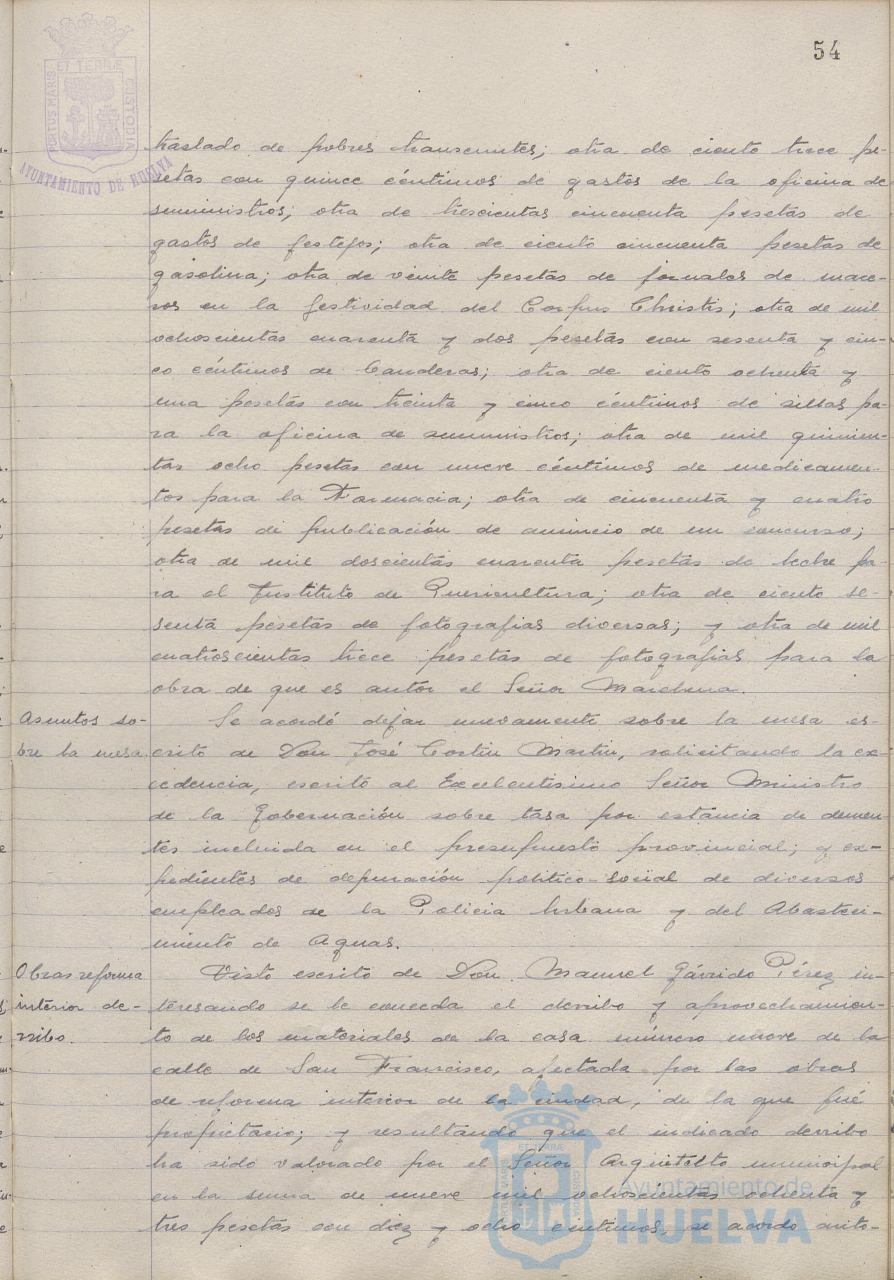 54
PORTUS MARIS ET TERRÆ CUSTODIA
AYUNTAMIENTO DE HUELVA
traslado de pobres transeuntes; otra de ciento trece pe-
setas con quince céntimos de gastos de la oficina de
suministros; otra de trescientas cincuenta pesetas de
gastos de festejos; otra de ciento cincuenta pesetas de
gasolina; otra de veinte pesetas de jornales de mace-
ros en la festividad del Corpus Christi; otra de mil
ochocientas cuarenta y dos pesetas con sesenta y cin-
co céntimos de banderas; otra de ciento ochenta y
una pesetas con treinta y cinco céntimos de sillas pa-
ra la oficina de suministros; otra de mil quinien-
tas ocho pesetas con nueve céntimos de medicamen-
tos para la Farmacia; otra de cincuenta y cuatro
pesetas di publicación de anuncio de un concurso;
otra de mil doscientas cuarenta pesetas de leche pa-
ra el Instituto de Puericultura; otra de ciento se-
senta pesetas de fotografias diversas; y otra de mil
cuatroscientas trece pesetas de fotografias para la
obra de que es autor el Señor Marchena.
Asuntos so-
bre la mesa
Se acordó dejar nuevamente sobre la mesa es-
crito de Don José Martin, solicitando la ex-
cedencia, escrito al Excelentisimo Señor Ministro
de la Gobernación sobre tasa por estancia de demen-
tes incluida en el presupuesto provincial; y ex-
pedientes de depuración politico-social de diversos
empleados de la Policia Urbana y del Abasteci-
miento de Aguas.
Obras reforma
interior de-
rribo.
Visto escrito de Don Manuel Gárrido Pérez in-
teresando se le conceda el derribo y aprovechamien-
to de los materiales de la casa número nueve de la
calle de San Francisco, afectada por las obras
de reforma interior de la ciudad, de la que fué
propietario; y resultando que el indicado derribo
ha sido valorado por el Señor Arquitecto municipal
en la suma de nueve mil ochocientas ochenta y
tres pesetas con diez y ocho céntimos, se acordo auto-
Ayuntamiento de
HUELVA